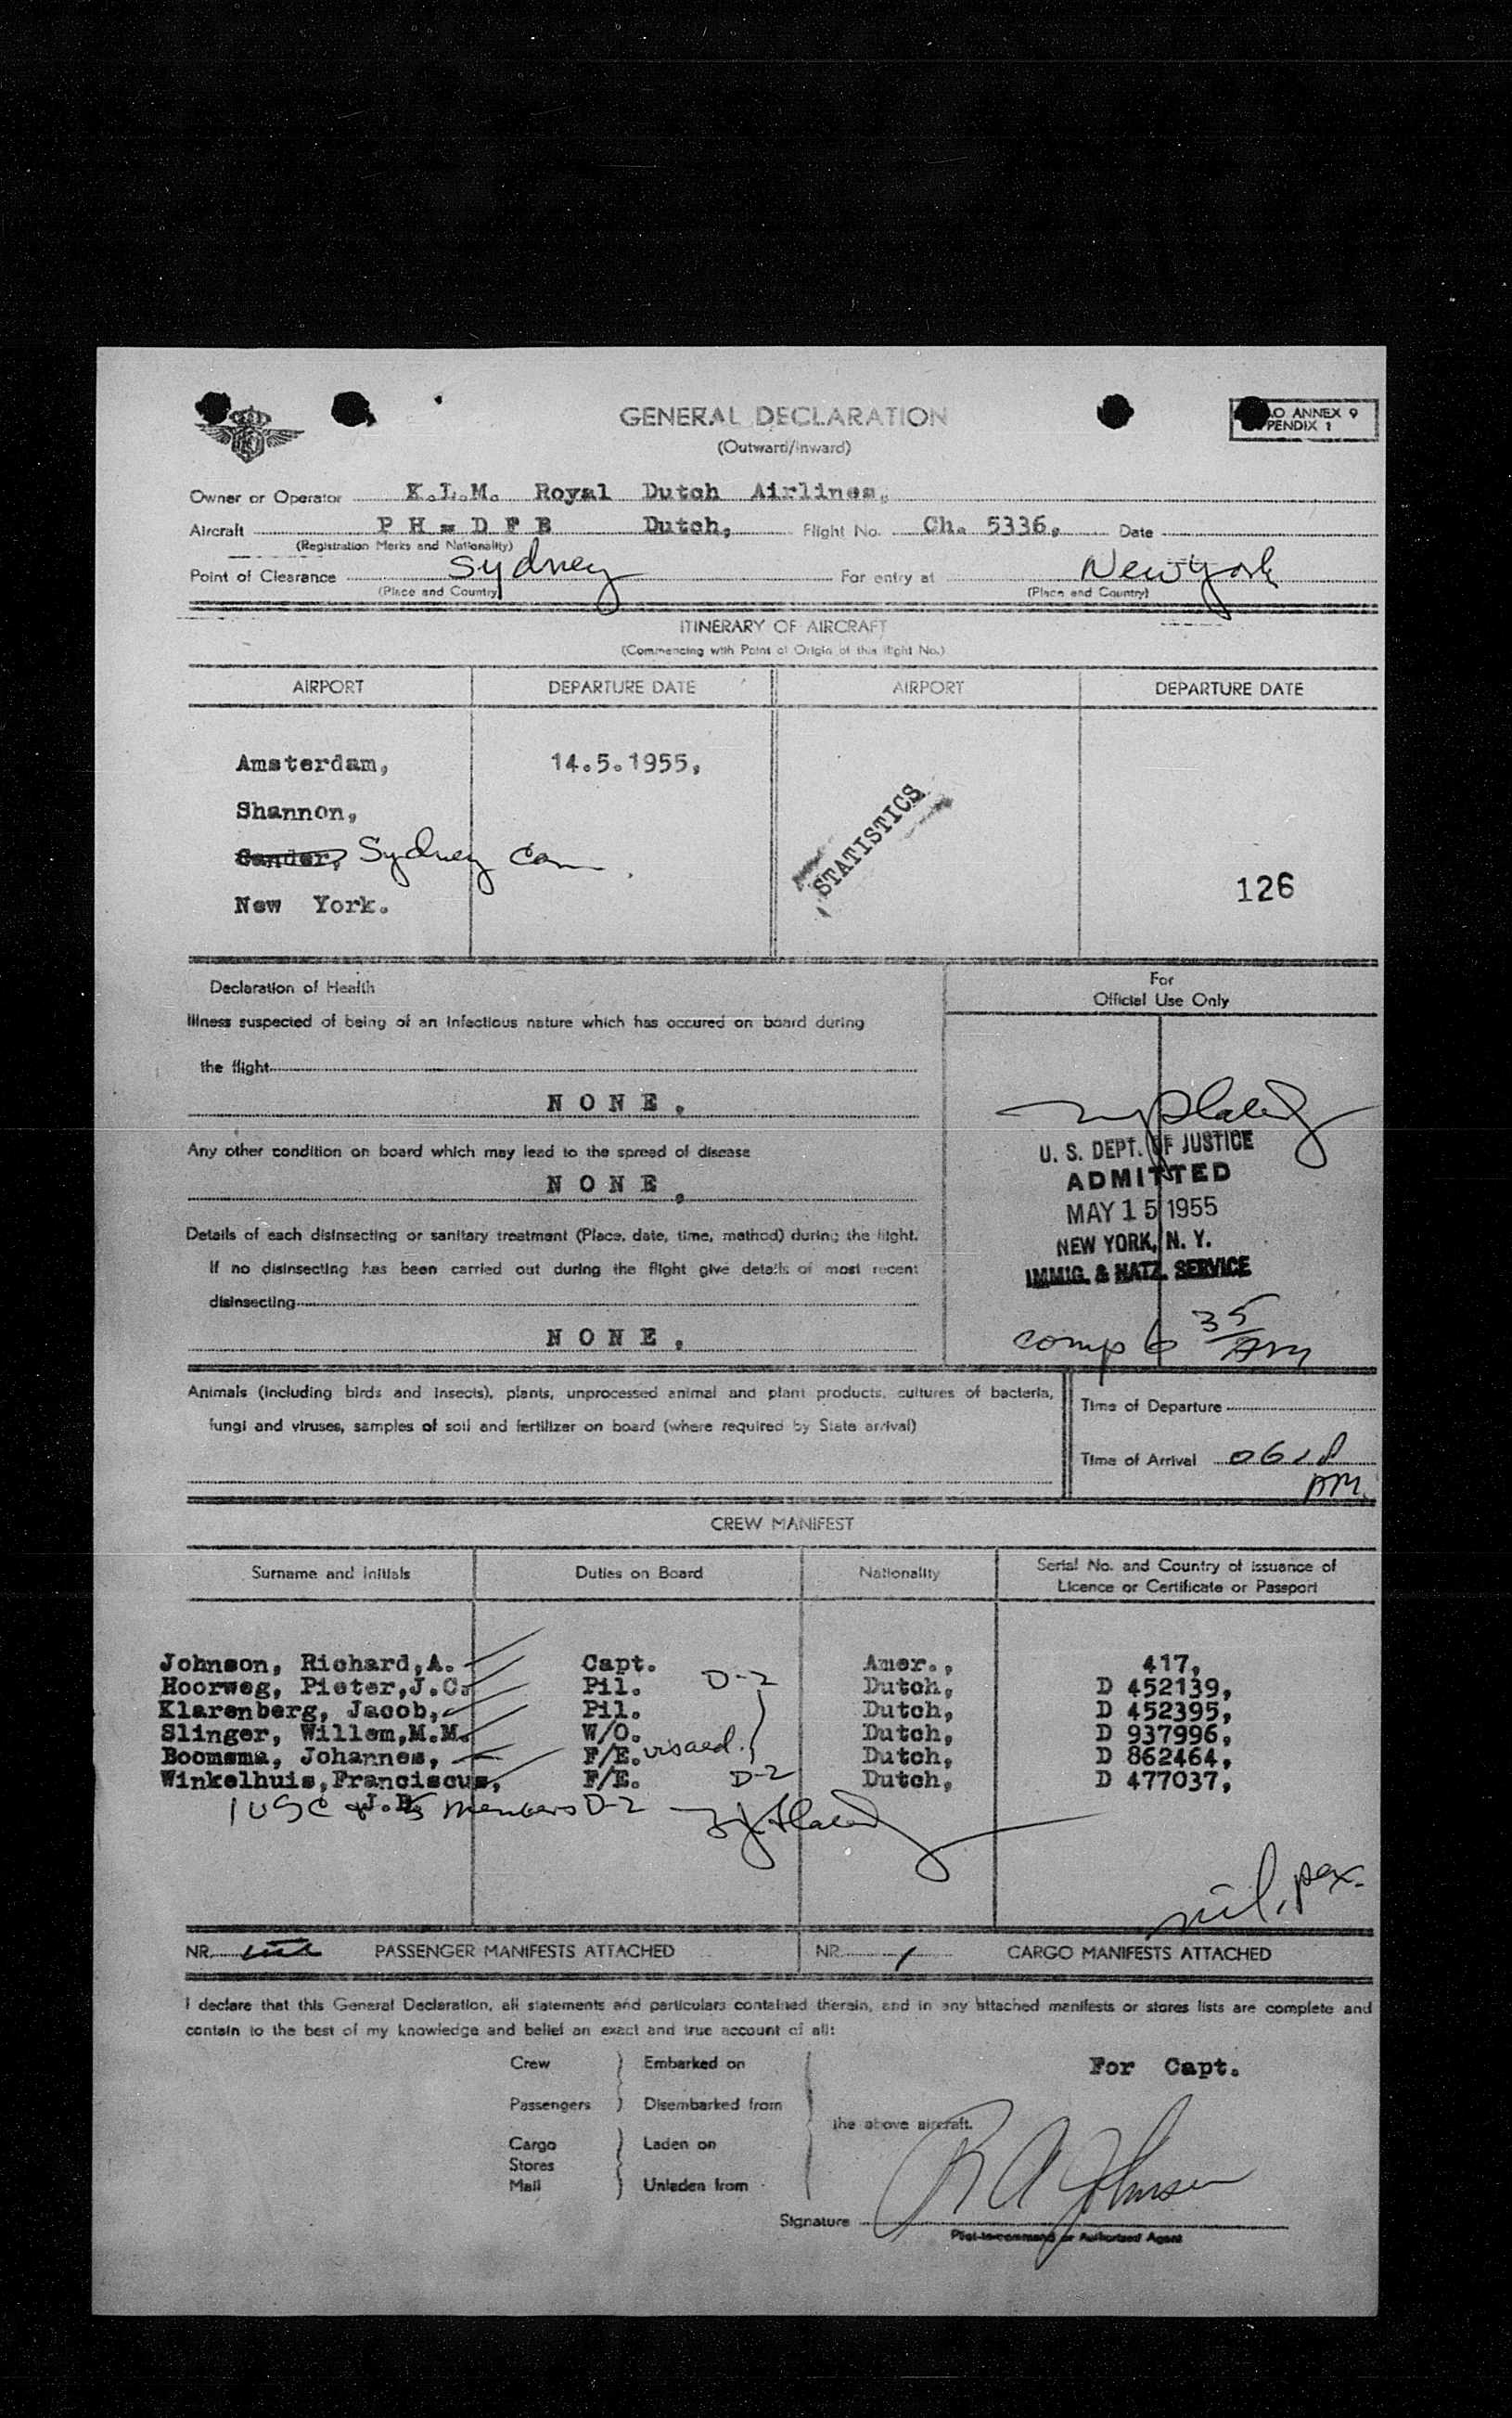 GENERAL DECLARATION
(Outward/Inward)
O ANNEX 9
PENDIX 1
Owner or Operator K.L.M. Royal Dutch Airlines,
Aircraft P H = D F B Dutch, Flight No. Ch. 5336, Date
(Registration Marks and Nationality)
Point of Clearance Sydney For entry at New York
(Place and Country) (Place and Country)
ITINERARY OF AIRCRAFT
(Commencing with Point of Origin of this flight No.)
AIRPORT DEPARTURE DATE AIRPORT DEPARTURE DATE
Amsterdam, 14.5.1955,
Shannon,
Gander, Sydney Can.
New York.
STATISTICS
126
Declaration of Health
Illness suspected of being of an infectious nature which has occured on board during
the flight
N O N E .
Any other condition on board which may lead to the spread of disease
N O N E .
Details of each disinsecting or sanitary treatment (Place, date, time, method) during the flight.
If no disinsecting has been carried out during the flight give details of most recent
disinsecting
N O N E .
For
Official Use Only
U. S. DEPT. OF JUSTICE
ADMITTED
MAY 15 1955
NEW YORK, N. Y.
IMMIG. & NATZ. SERVICE
comp 6 35/AM
Animals (including birds and insects), plants, unprocessed animal and plant products, cultures of bacteria,
fungi and viruses, samples of soil and fertilizer on board (where required by State arrival)
Time of Departure
Time of Arrival 0618
AM.
CREW MANIFEST
Surname and Initials Duties on Board Nationality Serial No. and Country of issuance of
Licence or Certificate or Passport
Johnson, Richard,A. Capt. Amer., 417,
Hoorweg, Pieter,J.C. Pil. D-2 Dutch, D 452139,
Klarenberg, Jacob, Pil. Dutch, D 452395,
Slinger, Willem,M.M. W/O. Dutch, D 937996,
Boomsma, Johannes, F/E. visaed. Dutch, D 862464,
Winkelhuis,Franciscus, F/E. D-2 Dutch, D 477037,
J.B.
1 USC & 5 members D-2
nil. pax.
NR. nil PASSENGER MANIFESTS ATTACHED NR. 1 CARGO MANIFESTS ATTACHED
I declare that this General Declaration, all statements and particulars contained therein, and in any attached manifests or stores lists are complete and
contain to the best of my knowledge and belief an exact and true account of all:
Crew ) Embarked on
Passengers ) Disembarked from
Cargo ) Laden on
Stores
Mail ) Unladen from
the above aircraft.
For Capt.
Signature R A Johnson
Pilot-in-command or Authorized Agent